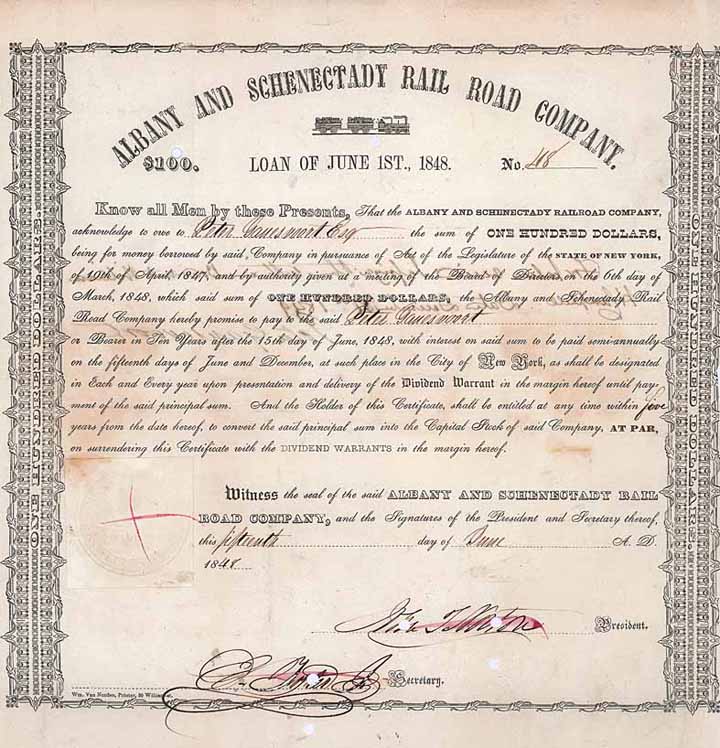 ALBANY AND SCHENECTADY RAIL ROAD COMPANY.
$100. LOAN OF JUNE 1ST., 1848. No. 48
Know all Men by these Presents, That the ALBANY AND SCHENECTADY RAILROAD COMPANY,
acknowledge to owe to Peter Gansevoort Esq the sum of ONE HUNDRED DOLLARS,
being for money borrowed by said Company in pursuance of Act of the Legislature of the STATE OF NEW YORK,
of 19th of April, 1847, and by authority given at a meeting of the Board of Directors, on the 6th day of
March, 1848, which said sum of ONE HUNDRED DOLLARS, the Albany and Schenectady Rail
Road Company hereby promise to pay to the said Peter Gansevoort
or Bearer in Ten Years after the 15th day of June, 1848, with interest on said sum to be paid semi-annually
on the fifteenth days of June and December, at such place in the City of New York, as shall be designated
in Each and Every year upon presentation and delivery of the Dividend Warrant in the margin hereof until pay-
ment of the said principal sum. And the Holder of this Certificate, shall be entitled at any time within five
years from the date hereof, to convert the said principal sum into the Capital Stock of said Company, AT PAR,
on surrendering this Certificate with the DIVIDEND WARRANTS in the margin hereof.
Witness the seal of the said ALBANY AND SCHENECTADY RAIL
ROAD COMPANY, and the Signatures of the President and Secretary thereof,
this fifteenth day of June A. D.
1848
President.
Secretary.
Wm. Van Norden, Printer, 39 William
ONE HUNDRED DOLLARS.